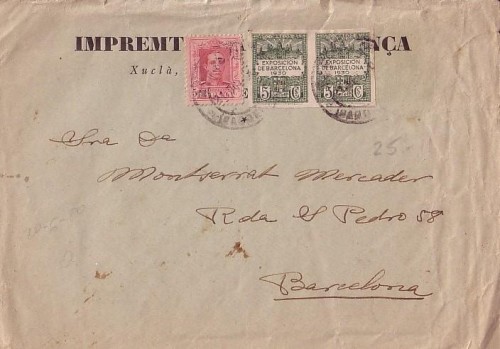 IMPREMT NÇA
Xuclà,
EXPOSICION
DE BARCELONA
1930
5 Cs
EXPOSICION
DE BARCELONA
1930
5 Cs
25-
Sra Da
Montserrat Mercader
Rda S Pedro 58
Barcelona